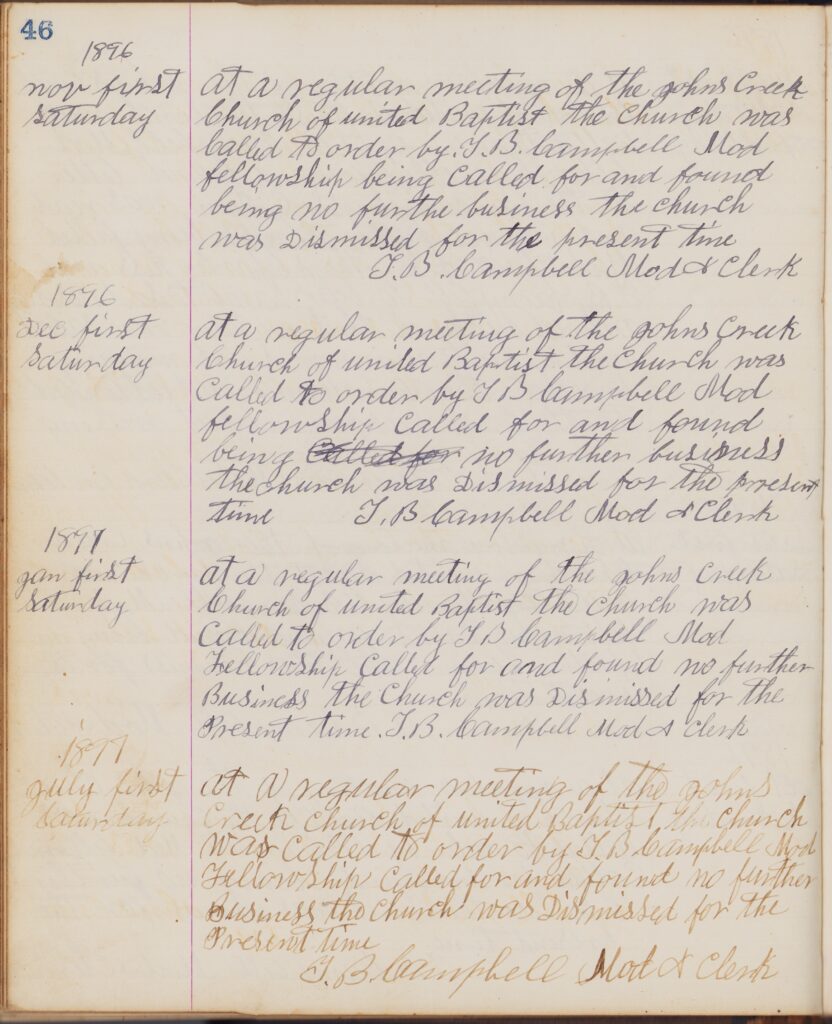 46
1896
nov first
Saturday
at a regular meeting of the johns Creek
Church of united Baptist the Church was
Called to order by. T. B. Campbell Mod
fellowship being Called for and found
being no furthe business the church
was Dismissed for the present time
T. B. Campbell Mod & Clerk
1896
Dec first
Saturday
at a regular meeting of the johns Creek
Church of united Baptist the Church was
Called to order by T B Campbell Mod
fellowship Called for and found
being Called for no further business
the church was Dismissed for the present
time T. B Campbell Mod & Clerk
1897
jan first
Saturday
at a regular meeting of the johns Creek
Church of united Baptist the church was
Called to order by T B Campbell Mod
Fellowship Called for and found no further
Business the Church was Dismissed for the
Present time. T. B. Campbell Mod & Clerk
1897
july first
Saturday
at a regular meeting of the johns
Creek church of united Baptist the church
was Called to order by T. B Campbell Mod
Fellowship Called for and found no further
Business the Church was Dismissed for the
Present time
T. B. Campbell Mod & Clerk